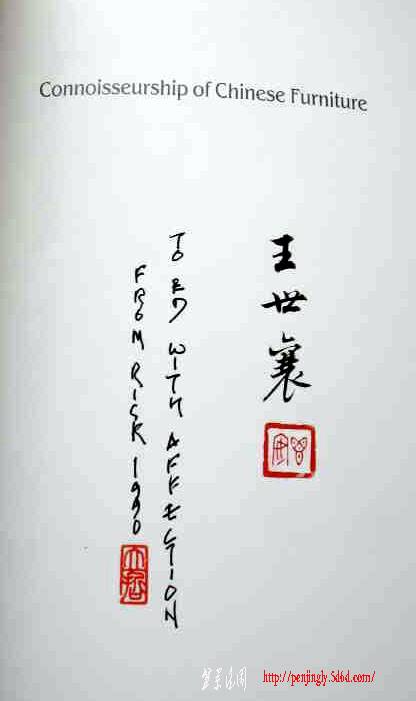 Connoisseurship of Chinese Furniture
王世襄
TO ED WITH AFFECTION
FROM RICK 1990
http://penjingly.5d6d.com/